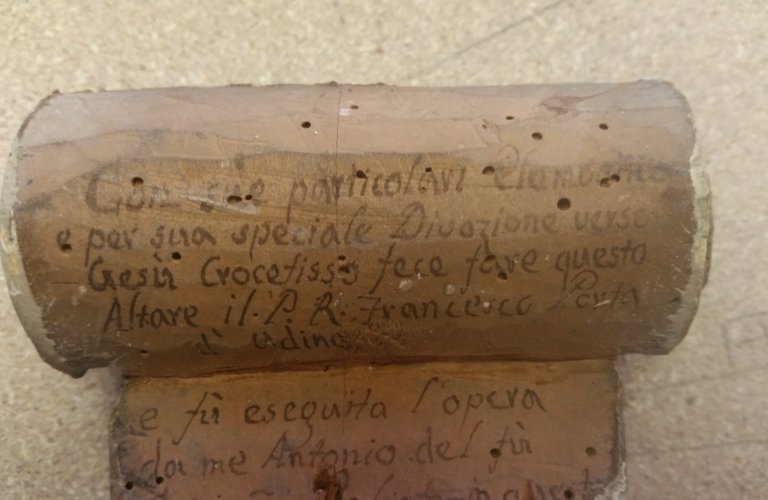 Con sue particolari Elemosine
e per sua speciale Divozione verso
Gesù Crocefisso fece fare questo
Altare il P. R. Francesco Porta
d' Udine
e fù eseguita l'opera
da me Antonio del fù